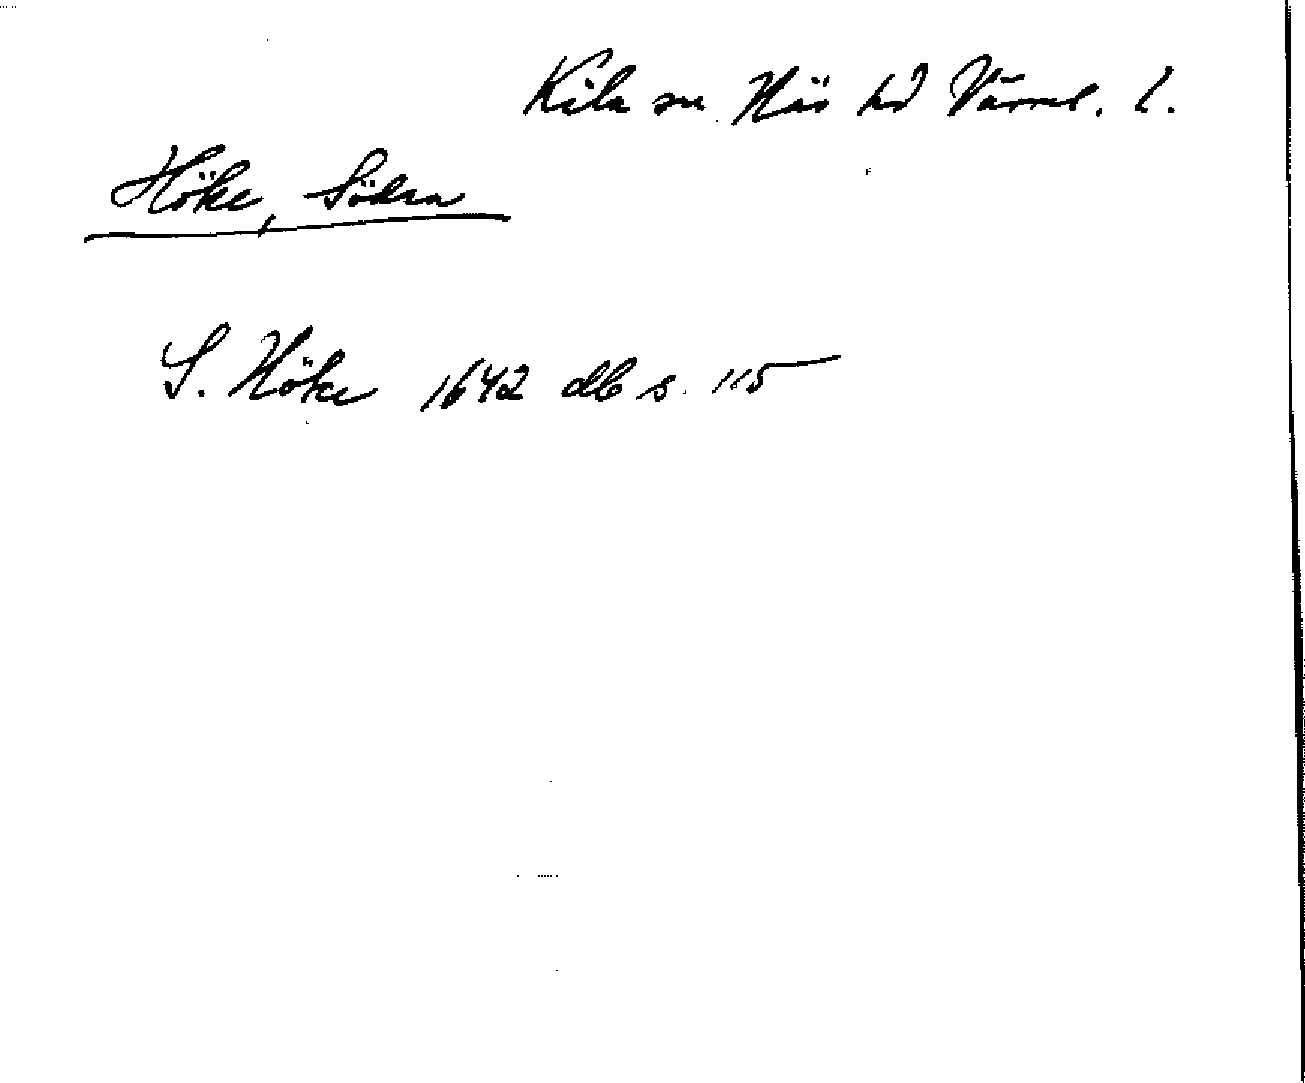 Kila sn Näs hd Värml. l.
Höke, Södra
S. Höke 1642 db s. 115